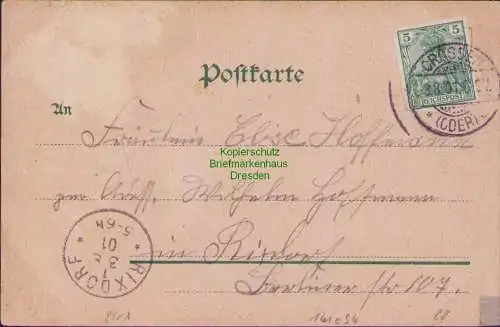 5 5
REICHSPOST
CROSSEN
(ODER)
Postkarte
An
Fräulein Elise Hoffmann
Kopierschutz
Briefmarkenhaus
Dresden
Wilhelm Hoffmann
in Rixdorf
Berliner Str 107.
RIXDORF
1
3
01
5-6N